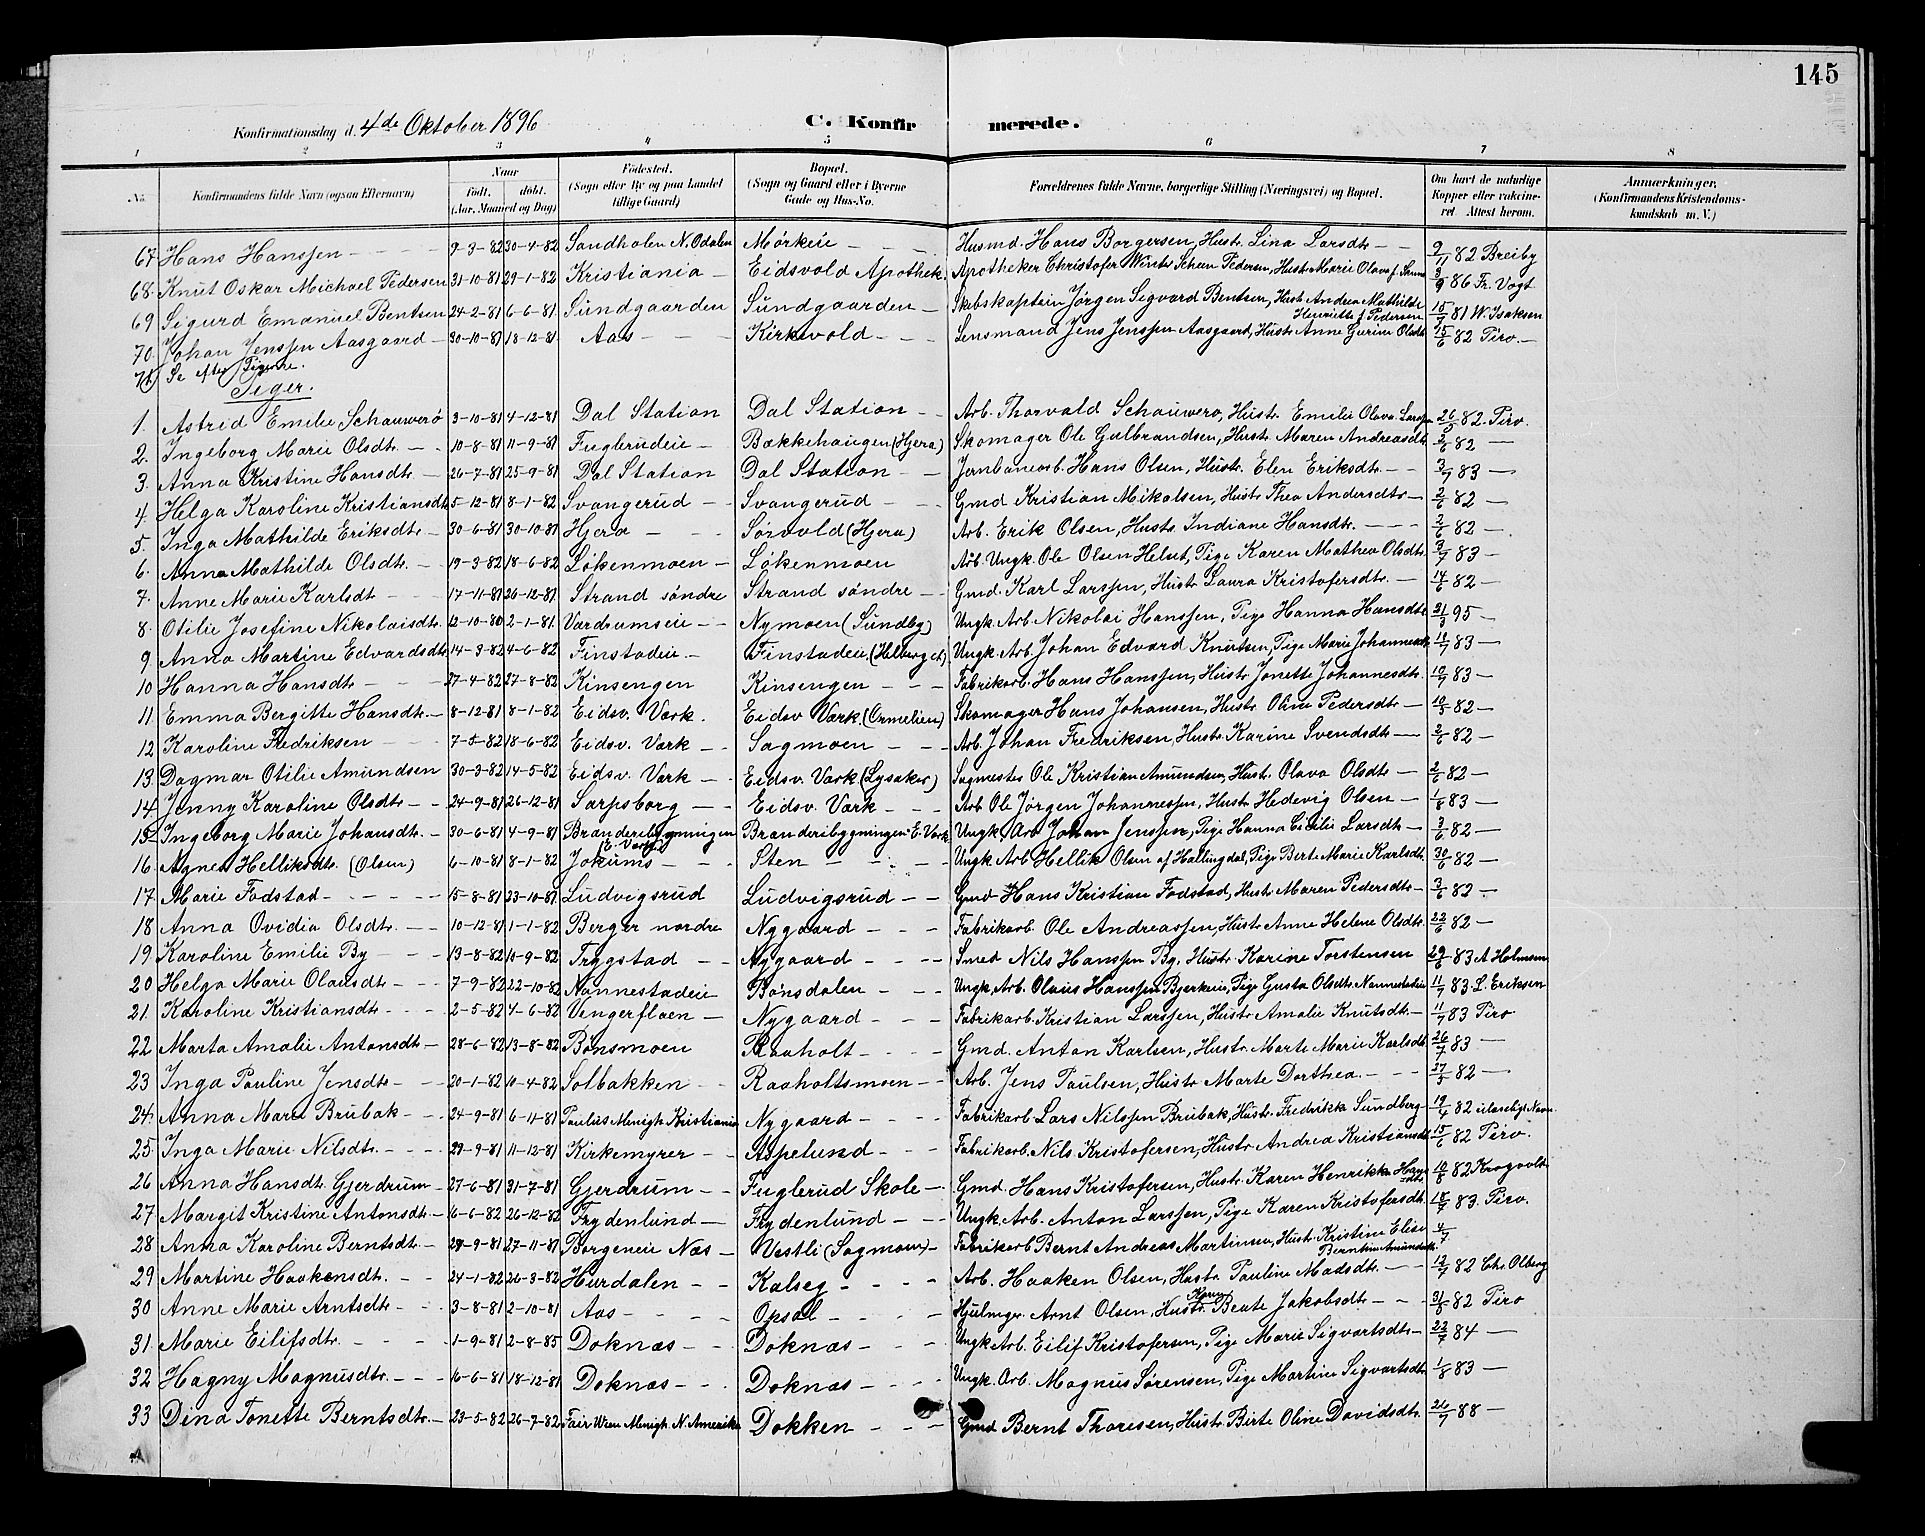 145
Konfirmationsdag d. 4de Oktober 1896 C. Konfirmerede.
1 2 3 4 5 6 7 8
No. Konfirmandens fulde Navn (ogsaa Efternavn) Naar født. døbt. (Aar, Maaned og Dag) Fødested. (Sogn eller By og paa Landet tillige Gaard) Bopæl. (Sogn og Gaard eller i Byerne Gade og Hus-No. Forældrenes fulde Navne, borgerlige Stilling (Næringsvei) og Bopæl. Om havt de naturlige Kopper eller vakcineret. Attest herom. Anmærkninger. (Konfirmandens Kristendomskundskab m. V.)
67 Hans Hanssen 9-3-82 30-4-82 Sandholen N. Odalen Mörkeie Husmd. Hans Borgersen, Hustr. Lina Larsdtr. 9/11 82 Breiby
68. Knut Oskar Michael Pedersen 31-10-81 29-1-82 Kristiania Eidsvold Apothek. Apotheker Christofer Scheen Pedersen, Hustr. Marie Olava f. 3/9 86 Fr. Vogt
69 Sigurd Emanuel Bentsen 24-2-81 6-6-81 Sundgaarden Sundgaarden Skibskaptein Jörgen Segvard Bentsen, Hustr. Andrea Mathilde Henriette f. Pedersen 15/7 81 W. Isaksen
70. Johan Jenssen Aasgaard 30-10-81 18-12-81 Aas Kirkevold Lensmand Jens Jenssen Aasgaard, Hustr. Anne Gurine Olsdt. 15/6 82 Piro.
71) Se efter Pigerne.
Piger.
1. Astrid Emilie Schauwerö 3-10-81 4-12-81 Dal Station Dal Station Arb. Thorvald Schauwero, Hustr. Emilie Olava Larsen 26/5 82 Piro.
2. Ingeborg Marie Olsdt. 10-8-81 11-9-81 Fuglerudeie Bækkehaugen (Hjera) Skomager Ole Gulbrandsen, Hustr. Maren Andreasdt. 2/6 82
3. Anna Kristine Hansdt. 26-7-81 25-9-81 Dal Station Dal Station Jernbanearb. Hans Olsen, Hustr. Elen Eriksdt. 3/7 83
4. Helga Karoline Kristiansdt. 5-12-81 8-1-82 Svangerud Svangerud Gmd. Kristian Mikalsen, Hustr. Thea Andersdtr. 2/6 82
5. Inga Mathilde Eriksdt. 30-6-81 30-10-81 Hjera Sörvold (Hjera) Arb. Erik Olsen, Hustr. Indiane Hansdtr. 2/6 82
6. Anna Mathilde Olsdtr. 19-3-82 18-6-82 Lökenmoen Lökenmoen Arb. Ungk. Ole Olsen Helset, Pige Karen Mathea Olsdtr. 3/7 83
7. Anne Marie Karlsdt. 17-11-81 26-12-81 Strand söndre Strand söndre Gmd. Karl Larssen, Hustr. Laura Kristofersdtr. 14/6 82
8. Otilie Josefine Nikolaisdtr. 12-10-80 2-1-81. Vardrumseie Nymoen (Sundby) Ungk. Arb. Nikolai Hanssen, Pige Hanna Hansdtr. 21/3 95
9. Anna Martine Edvardsdtr. 14-3-82 4-6-82 Finstadeie Finstadeie (Helberget) Ungk. Arb. Johan Edvard Knutsen, Pige Marie Johannesdt. 10/7 83
10 Hanna Hansdtr. 27-4-82 27-8-82 Kinsengen Kinsengen Fabrikarb. Hans Hanssen, Hustr. Jonette Johannesdtr. 10/7 83
11. Emma Bergitte Hansdtr. 8-12-81 8-1-82 Eidsv. Værk. Eidsv Værk. (Ormelien) Skomager Hans Johansen, Hustr. Oline Pedersdtr. 10/5 82
12 Karoline Fredriksen 7-5-82 18-6-82 Eidsv. Værk Sagmoen Arb. Johan Fredriksen, Hustr. Karine Svendsdtr. 2/6 82
13. Dagmar Otilie Amundsen 30-3-82 14-5-82 Eidsv. Værk Eidsv. Værk (Lysaker) Sagmester Ole Kristian Amundsen, Hustr. Olava Olsdtr. 2/6 82
14. Jenny Karoline Olsdtr. 24-9-81 26-12-81 Sarpsborg Eidsv. Værk Arb. Ole Jörgen Johannessen, Hustr. Hedevig Olsen 1/8 83
15. Ingeborg Marie Johansdtr. 30-6-81 4-9-81 Branderibygningen (E. Værk) Branderibygningen E. Værk Ungk. Arb. Johan Jenssen, Pige Hanna Cicilie Larsdtr. 3/6 82
16. Agnes Helliksdtr. (Olsen) 6-10-81 8-1-82 Jokums Sten Ungk. Arb. Hellik Olsen af Hallingdal, Pige Berte Marie Karlsdtr. 30/6 82
17. Marie Fodstad 15-8-81 23-10-81 Ludvigsrud Ludvigsrud Gmd. Hans Kristian Fodstad, Hustr. Maren Pedersdtr. 3/6 82
18 Anna Ovidia Olsdtr. 10-12-81 1-1-82 Berger nordre Nygaard Fabrikarb. Ole Andreassen, Hustr. Anne Helene Olsdtr. 22/6 82
19. Karoline Emilie By 13-8-82 10-9-82 Trygstad Nygaard Smed Nils Hanssen By, Hustr. Karine Torstensen 29/6 83 A. Holmsen
20 Helga Marie Olausdtr. 7-9-82 22-10-82 Nannestadeie Bönsdalen Ungk. Arb. Olaus Hanssen Bjerkeie, Pige Gusta Olsdtr. Nannestadeie 11/7 83 L. Eriksen
21. Karoline Kristiansdtr. 2-5-82 4-6-82 Vengerflaen Nygaard Fabrikarb. Kristian Larssen, Hustr. Amalie Knutsdtr. 11/7 83 Piro
22 Marta Amalie Antonsdtr. 28-6-82 13-8-82 Bönsmoen Raaholt Gmd. Anton Karlsen, Hustr. Marte Marie Karlsdt. 26/7 83
23 Inga Pauline Jensdtr. 20-1-82 10-4-82 Solbakken Raaholtsmoen Arb. Jens Paulsen, Hustr. Marte Dorthea. 27/5 82
24. Anna Marie Brubak 24-9-81 6-11-81 Paulus Menigh. Kristiania Nygaard Fabrikarb. Lars Nilssen Brubak, Hustr. Fredrikke Sundberg 19/4 82 ulæseligt Navn.
25. Inga Marie Nilsdtr. 29-9-81 11-12-81 Kirkemyrer Aspelund Fabrikarb. Nils Kristofersen, Hustr. Andrea Kristiansdt. 15/6 82 Piro.
26 Anna Hansdt. Gjerdrum 27-6-81 31-7-81 Gjerdrum Fuglerud Skole Gmd. Hans Kristofersen, Hustr. Karen Henrikke Hansdtr. 10/8 82 Krogvold
27 Margit Kristine Antonsdtr. 16-6-82 26-12-82 Frydenlund Frydenlund Ungk. Arb. Anton Larssen, Pige Karen Kristofersdt. 18/7 83 Piro.
28 Anna Karoline Berntsdtr. 29-9-81 27-11-81 Borgeneie Næs Vestli (Sagmoen) Fabrikarb. Bernt Andreas Martinsen, Hustr. Kristine Elise Berntine Amundsdt. 4/7
29 Martine Haakensdt. 24-1-82 26-3-82 Hurdalen Kalseg Arb. Haaken Olsen, Hustr. Pauline Madsdtr. 12/7 82 Chr. Olberg
30 Anne Marie Arntsdtr. 3-8-81 2-10-81 Aas Opsal Hjulmgr. Arnt Olsen, Hustr. Karen Beate Jakobsdt. 31/5 82 Piro
31. Marie Eilifsdtr. 1-9-81 2-8-85 Doknæs Doknæs Ungk. Arb. Eilif Kristofersen, Pige Marie Sigvartsdtr. 22/7 84
32 Hagny Magnusdtr. 16-6-81 18-12-81 Doknæs Doknæs Ungk. Arb. Magnus Sörensen, Pige Martine Sigvartsdt. 1/8 83
33 Dina Tonette Berntsdtr. 23-5-82 26-7-82 Fair Menigh. N. Amerika Dokken Gmd. Bernt Thoresen, Hustr. Birte Oline Davidsdtr. 26/7 88